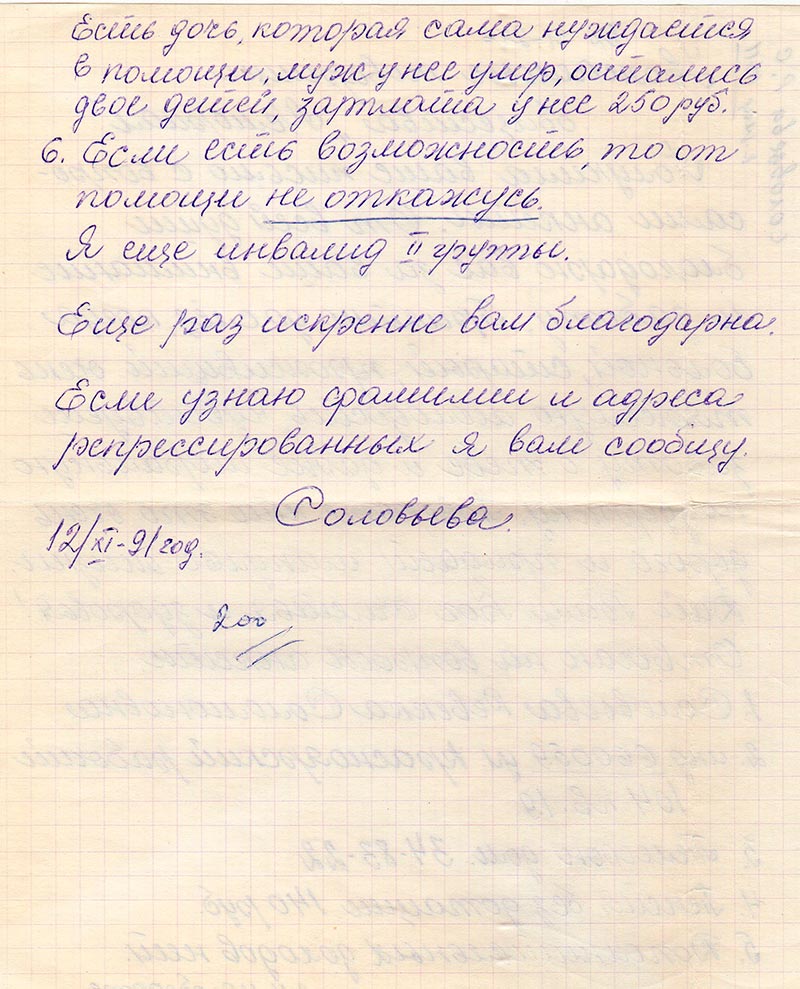 Есть дочь, которая сама нуждается
в помощи, муж у нее умер, остались
двое детей, зарплата у нее 250 руб.
6. Если есть возможность, то от
помощи не откажусь.
Я еще инвалид II группы.
Еще раз искренне вам благодарна.
Если узнаю фамилии и адреса
репрессированных я вам сообщу.
Соловьева.
12/XI-91 год.
200